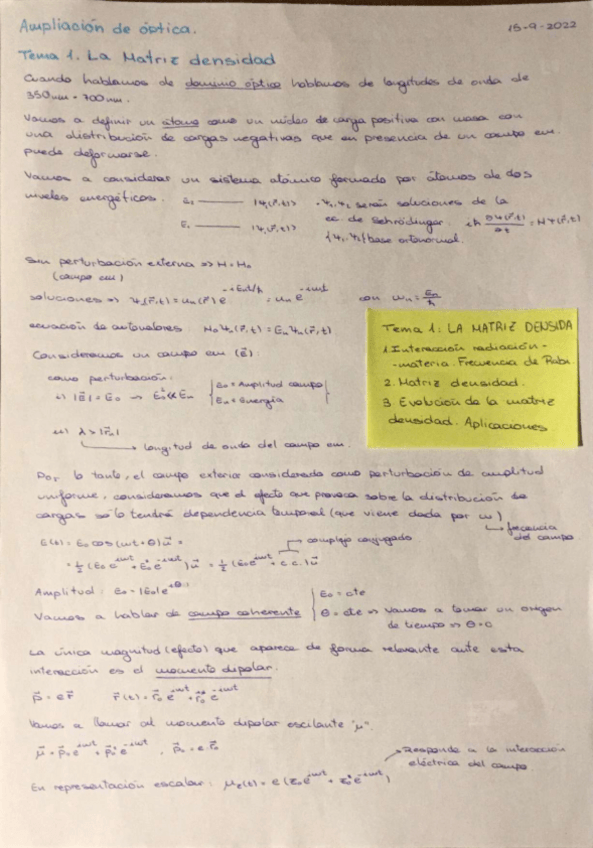 Ampliación de óptica.
15-9-2022
Tema 1. La Matriz densidad
Cuando hablamos de dominio óptico hablamos de longitudes de onda de
350nm - 700nm.
Vamos a definir un átomo como un núcleo de carga positiva con masa con
una distribución de cargas negativas que en presencia de un campo em.
puede deformarse.
Vamos a considerar un sistema atómico formado por átomos de dos
niveles energéticos.
Ψ₁,Ψ₂ serán soluciones de la
ec. de Schrödinger. iħ ∂Ψ(r⃗,t)/∂t = HΨ(r⃗,t)
{Ψ₁,Ψ₂} base ortonormal.
Sin perturbación externa => H = H₀
(campo em)
soluciones => Ψₙ(r⃗,t) = uₙ(r⃗) e^(-iEₙt/ħ) = uₙ e^(-iωₙt) con ωₙ = Eₙ/ħ
ecuación de autovalores: H₀Ψₙ(r⃗,t) = EₙΨₙ(r⃗,t)
Consideramos un campo em (E⃗):
como perturbación:
i) |E⃗| = E₀
E₀ = Amplitud campo
Eₙ = Energía
ii) λ > |r⃗₀|
longitud de onda del campo em.
Tema 1: LA MATRIZ DENSIDA
1. Interacción radiación -
- materia. Frecuencia de Rabi
2. Matriz densidad.
3. Evolución de la matriz
densidad. Aplicaciones
Por lo tanto, el campo exterior considerado como perturbación de amplitud
uniforme, consideramos que el efecto que provoca sobre la distribución de
cargas sólo tendrá dependencia temporal (que viene dada por ω)
frecuencia
del campo
E(t) = E₀ cos(ωt + θ) u⃗ =
complejo conjugado
= ½ (E₀ e^(iωt) + E₀* e^(-iωt)) u⃗ = ½ (E₀ e^(iωt) + c.c.) u⃗
Amplitud: E₀ = |E₀| e^(iθ)
E₀ = cte
Vamos a hablar de campo coherente
θ = cte => Vamos a tomar un origen
de tiempo => θ = 0
La única magnitud (efecto) que aparece de forma relevante ante esta
interacción es el momento dipolar.
p⃗ = e r⃗ r⃗(t) = r⃗₀ e^(iωt) + r⃗₀* e^(-iωt)
Vamos a llamar al momento dipolar oscilante "μ".
μ⃗ = p⃗₀ e^(iωt) + p⃗₀* e^(-iωt), p⃗₀ = e r⃗₀
Responde a la interacción
eléctrica del campo
En representación escalar: μz(t) = e (z₀ e^(iωt) + z₀* e^(-iωt))